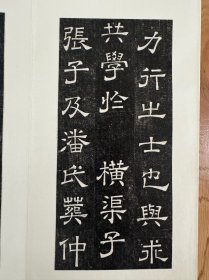 力行之士也與求
共學於 橫渠子
張子及潘氏葬仲